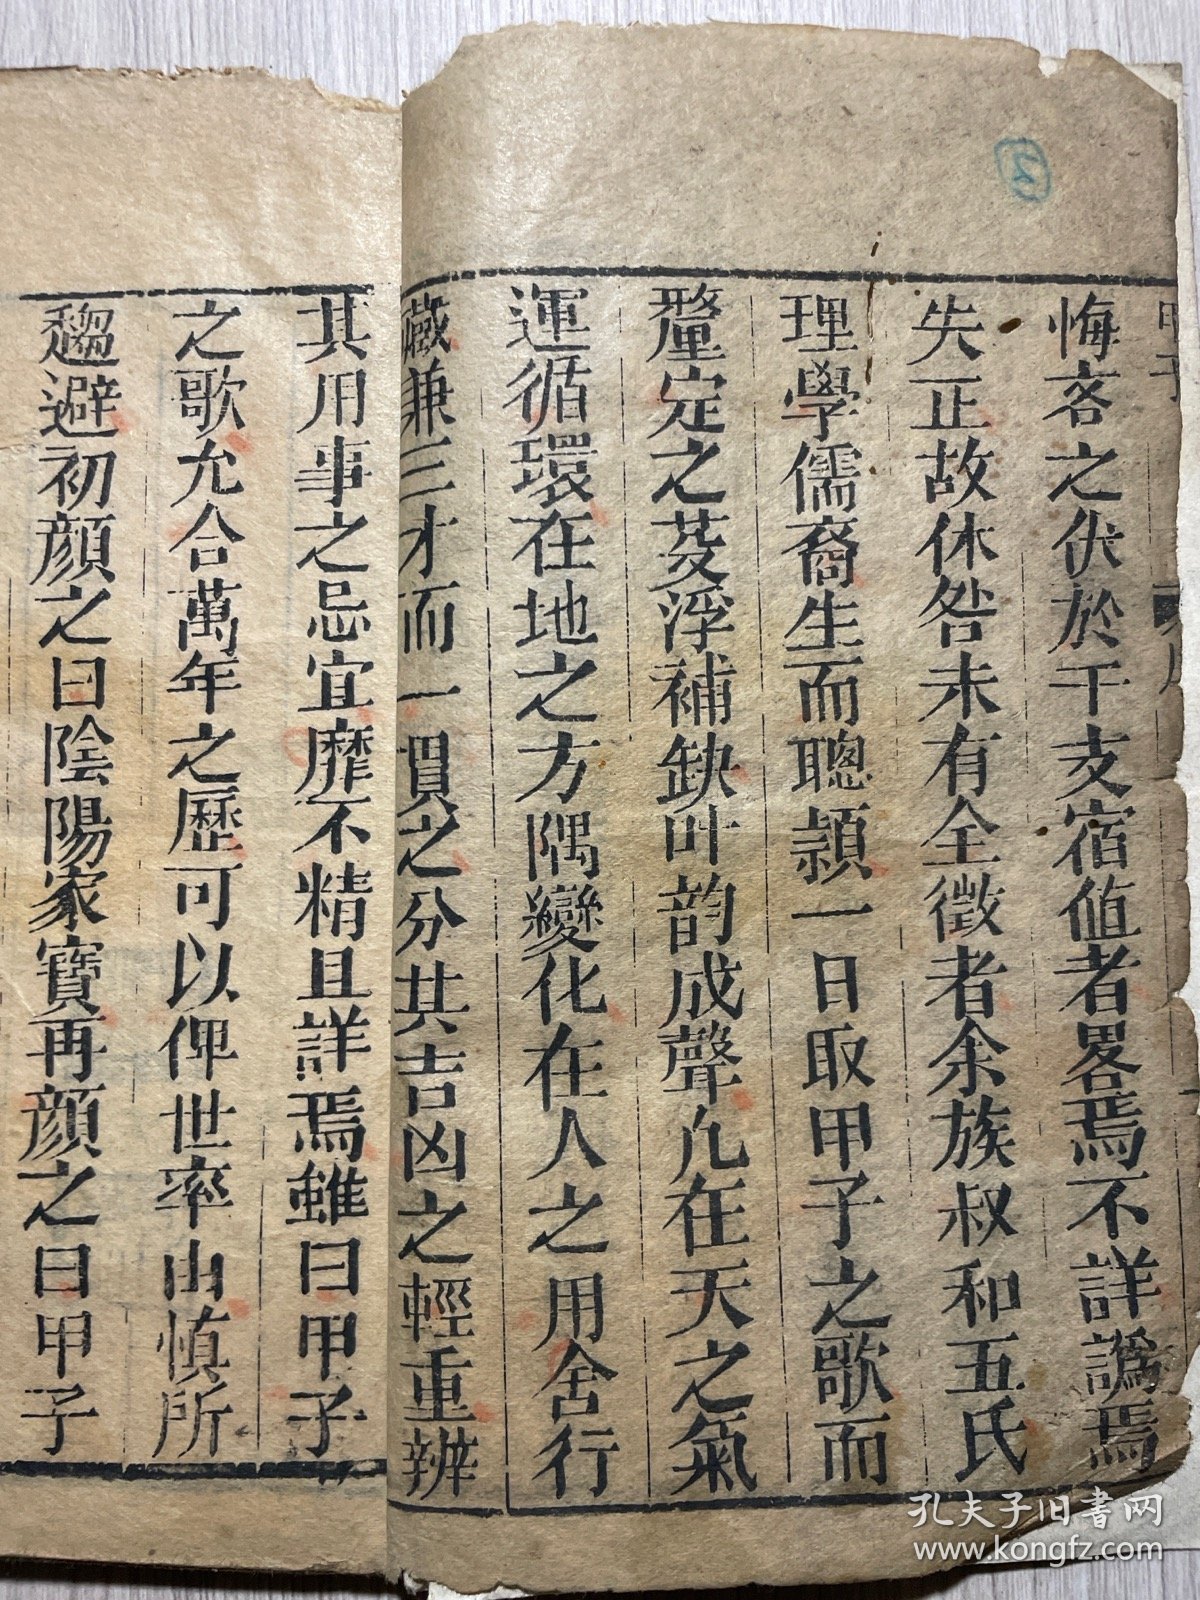 悔吝之伏於干支宿值者畧焉不詳譌焉
失正故休咎未有全徵者余族叔和五氏
理學儒裔生而聰頴一日取甲子之歌而
釐定之芟浮補缺叶韵成聲凢在天之氣
運循環在地之方隅變化在人之用舍行
藏兼三才而一貫之分其吉凶之輕重辨
其用事之忌宜靡不精且詳焉雖曰甲子
之歌允合萬年之歷可以俾世率由慎所
趨避初顔之曰陰陽家寶再顔之曰甲子
孔夫子旧书网
www.kongfz.com